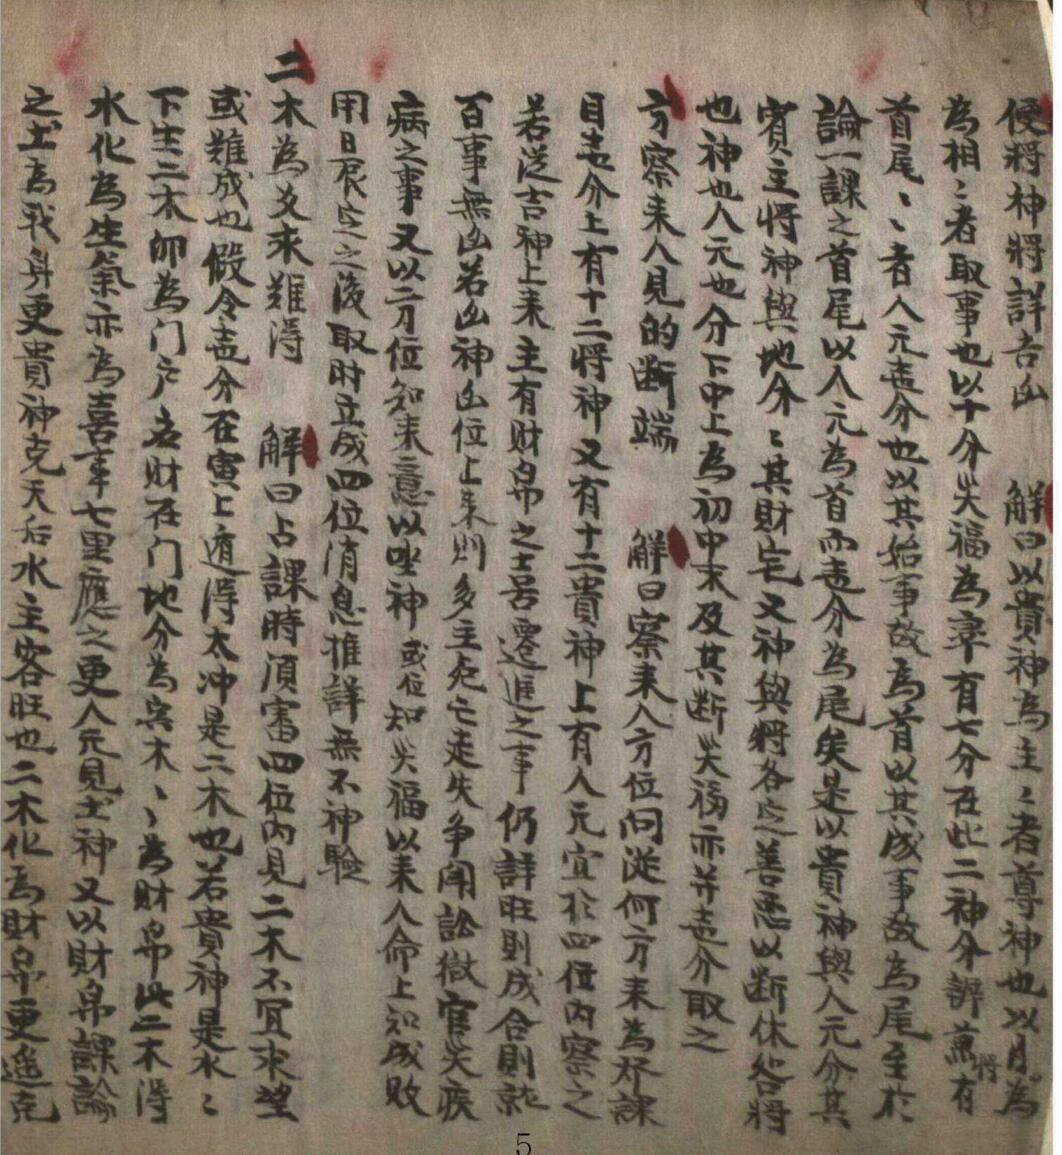 便將神將詳吉凶　解曰以貴神為主〻者尊神也以月將為
為相〻者取事也以十分災福為率有七分在此二神分辨萬有
首尾〻〻者人元壵分也以其始事故為首以其成事故為尾至於
論一課之首尾以人元為首而壵分為尾矣是以貴神與人元分其
賓主將神與地分〻其財宅又神與將各定善惡以断休咎將
也神也人元也分下中上為初中末及其断災福亦并壵分取之
方察来人見的断端　解曰察来人方位问從何方来為好課
目壵分上有十二將神又有十二貴神上有人元宜於四位内察之
若從吉神上来主有財帛之士呂遷進之事仍詳旺則成合則就
百事無凶若凶神凶位上来則多主死亡走失争闹訟獄官災疾
病之事又以方位知来意以坐神或位知災福以来人命上知成敗
用日辰定之後取时立成四位消息推詳無不神驗
二木為爻求難淂　解曰占課時湏審四位内見二木不宜求望
或難成也假令壵分在寅上遁淂太冲是二木也若貴神是水〻
下生二木卯為门户吉財在门地分為寅木〻為財帛此二木淂
水化為生氣亦為喜事七里應之更人元見土神又以財帛課論
之土為我身更貴神克天后水主客旺也二木化為財帛更遥克